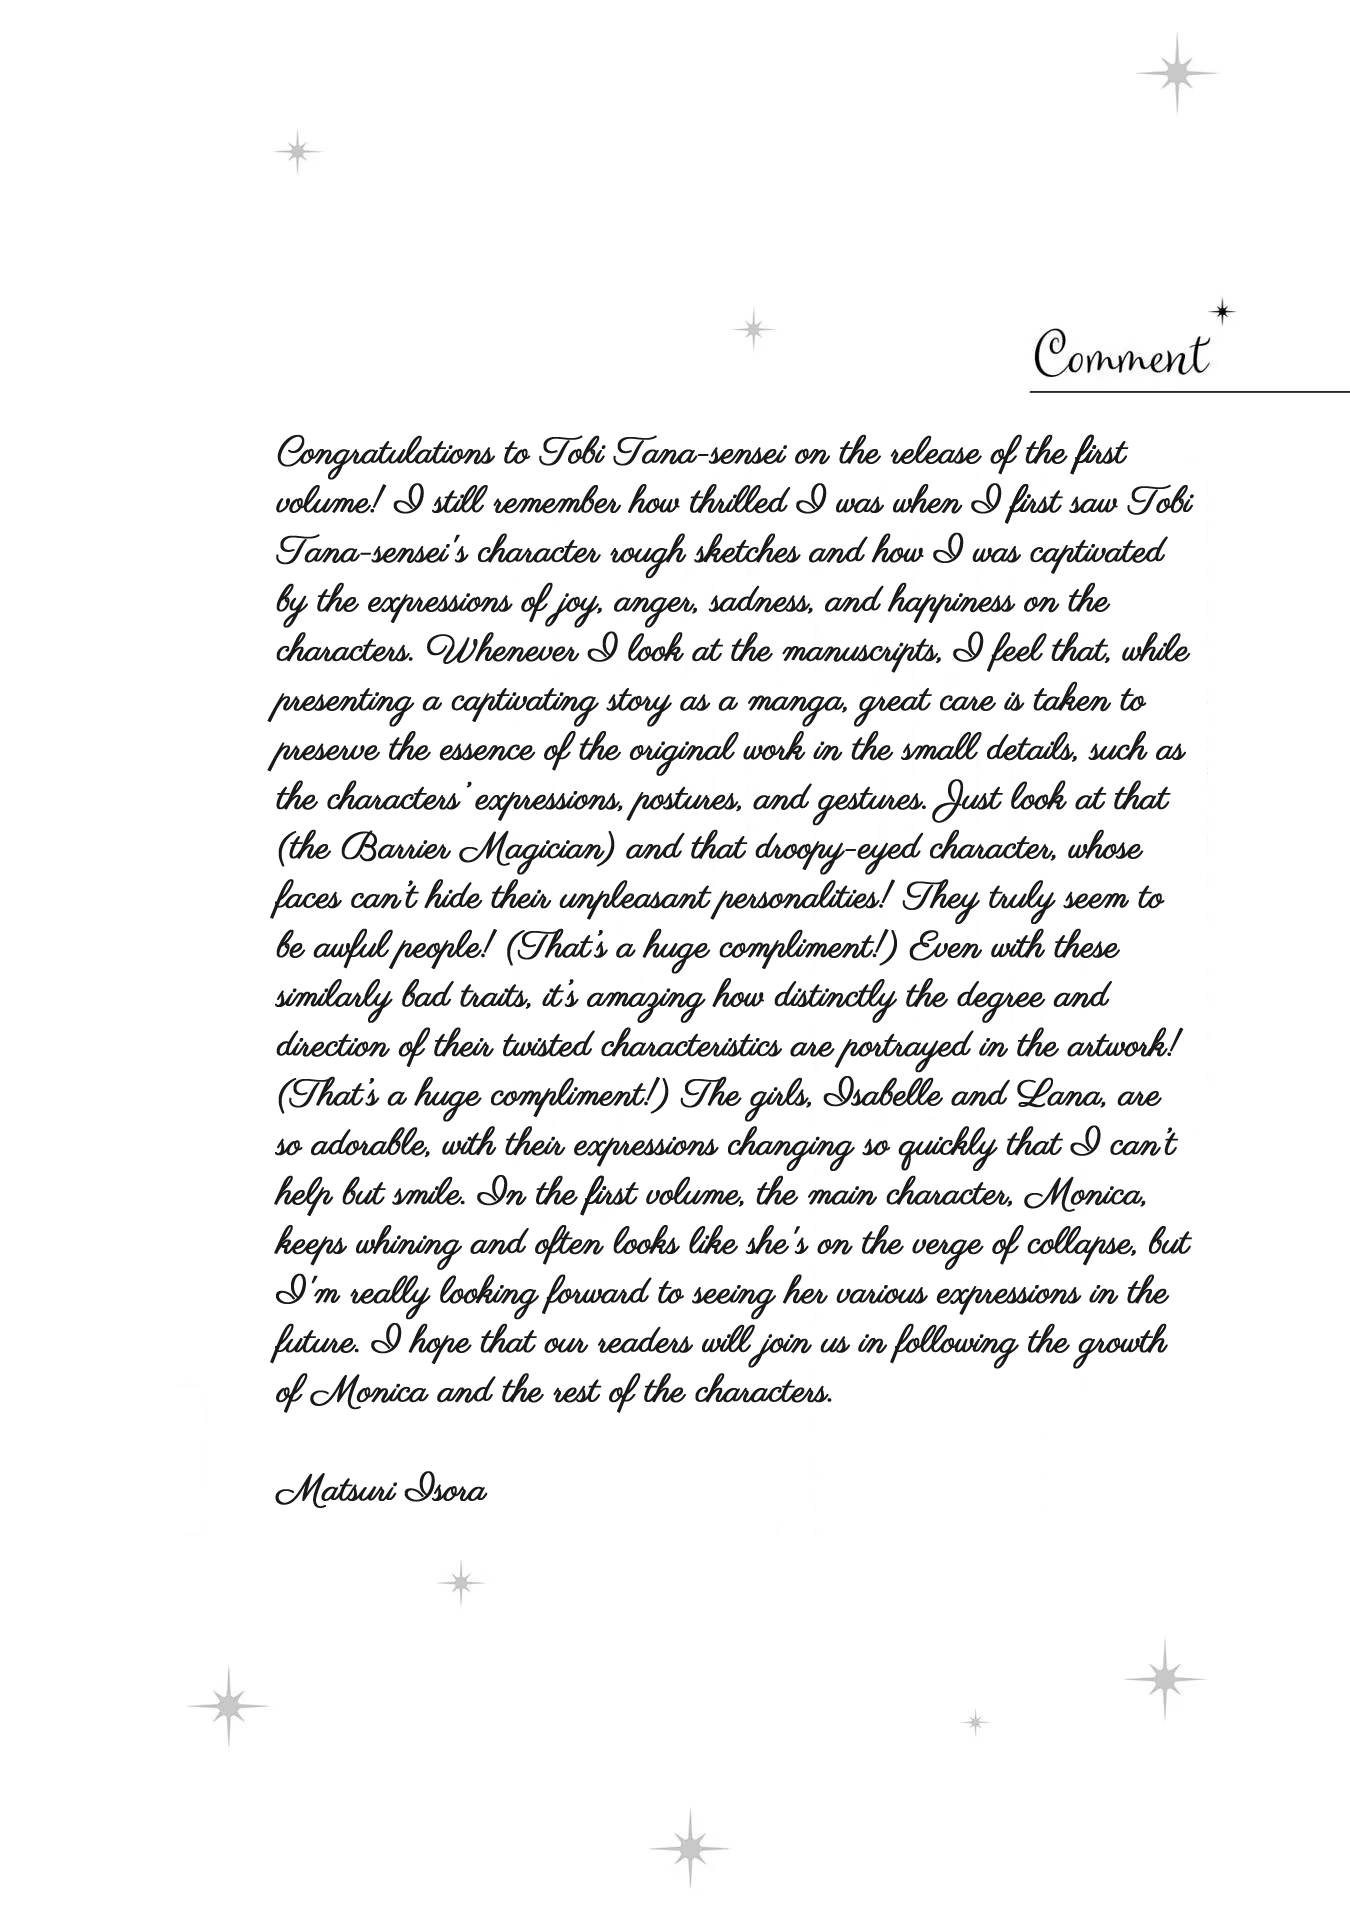 Comment
Congratulations to Tobi Tana-sensei on the release of the first
volume! I still remember how thrilled I was when I first saw Tobi
Tana-sensei's character rough sketches and how I was captivated
by the expressions of joy, anger, sadness, and happiness on the
characters. Whenever I look at the manuscripts, I feel that, while
presenting a captivating story as a manga, great care is taken to
preserve the essence of the original work in the small details, such as
the characters’ expressions, postures, and gestures. Just look at that
(the Barrier Magician) and that droopy-eyed character, whose
faces can’t hide their unpleasant personalities! They truly seem to
be awful people! (That’s a huge compliment!) Even with these
similarly bad traits, it’s amazing how distinctly the degree and
direction of their twisted characteristics are portrayed in the artwork!
(That’s a huge compliment!) The girls, Isabelle and Lana, are
so adorable, with their expressions changing so quickly that I can’t
help but smile. In the first volume, the main character, Monica,
keeps whining and often looks like she's on the verge of collapse, but
I'm really looking forward to seeing her various expressions in the
future. I hope that our readers will join us in following the growth
of Monica and the rest of the characters.
Matsuri Isora